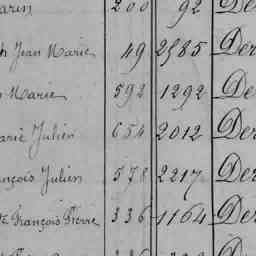 arin 200 92 De
h Jean Marie 49 2585 Der
Marie 592 1292 Der
arie Julien 654 2012 Der
ançois Julien 578 2217 Der
te François Pierre 336 1164 Der